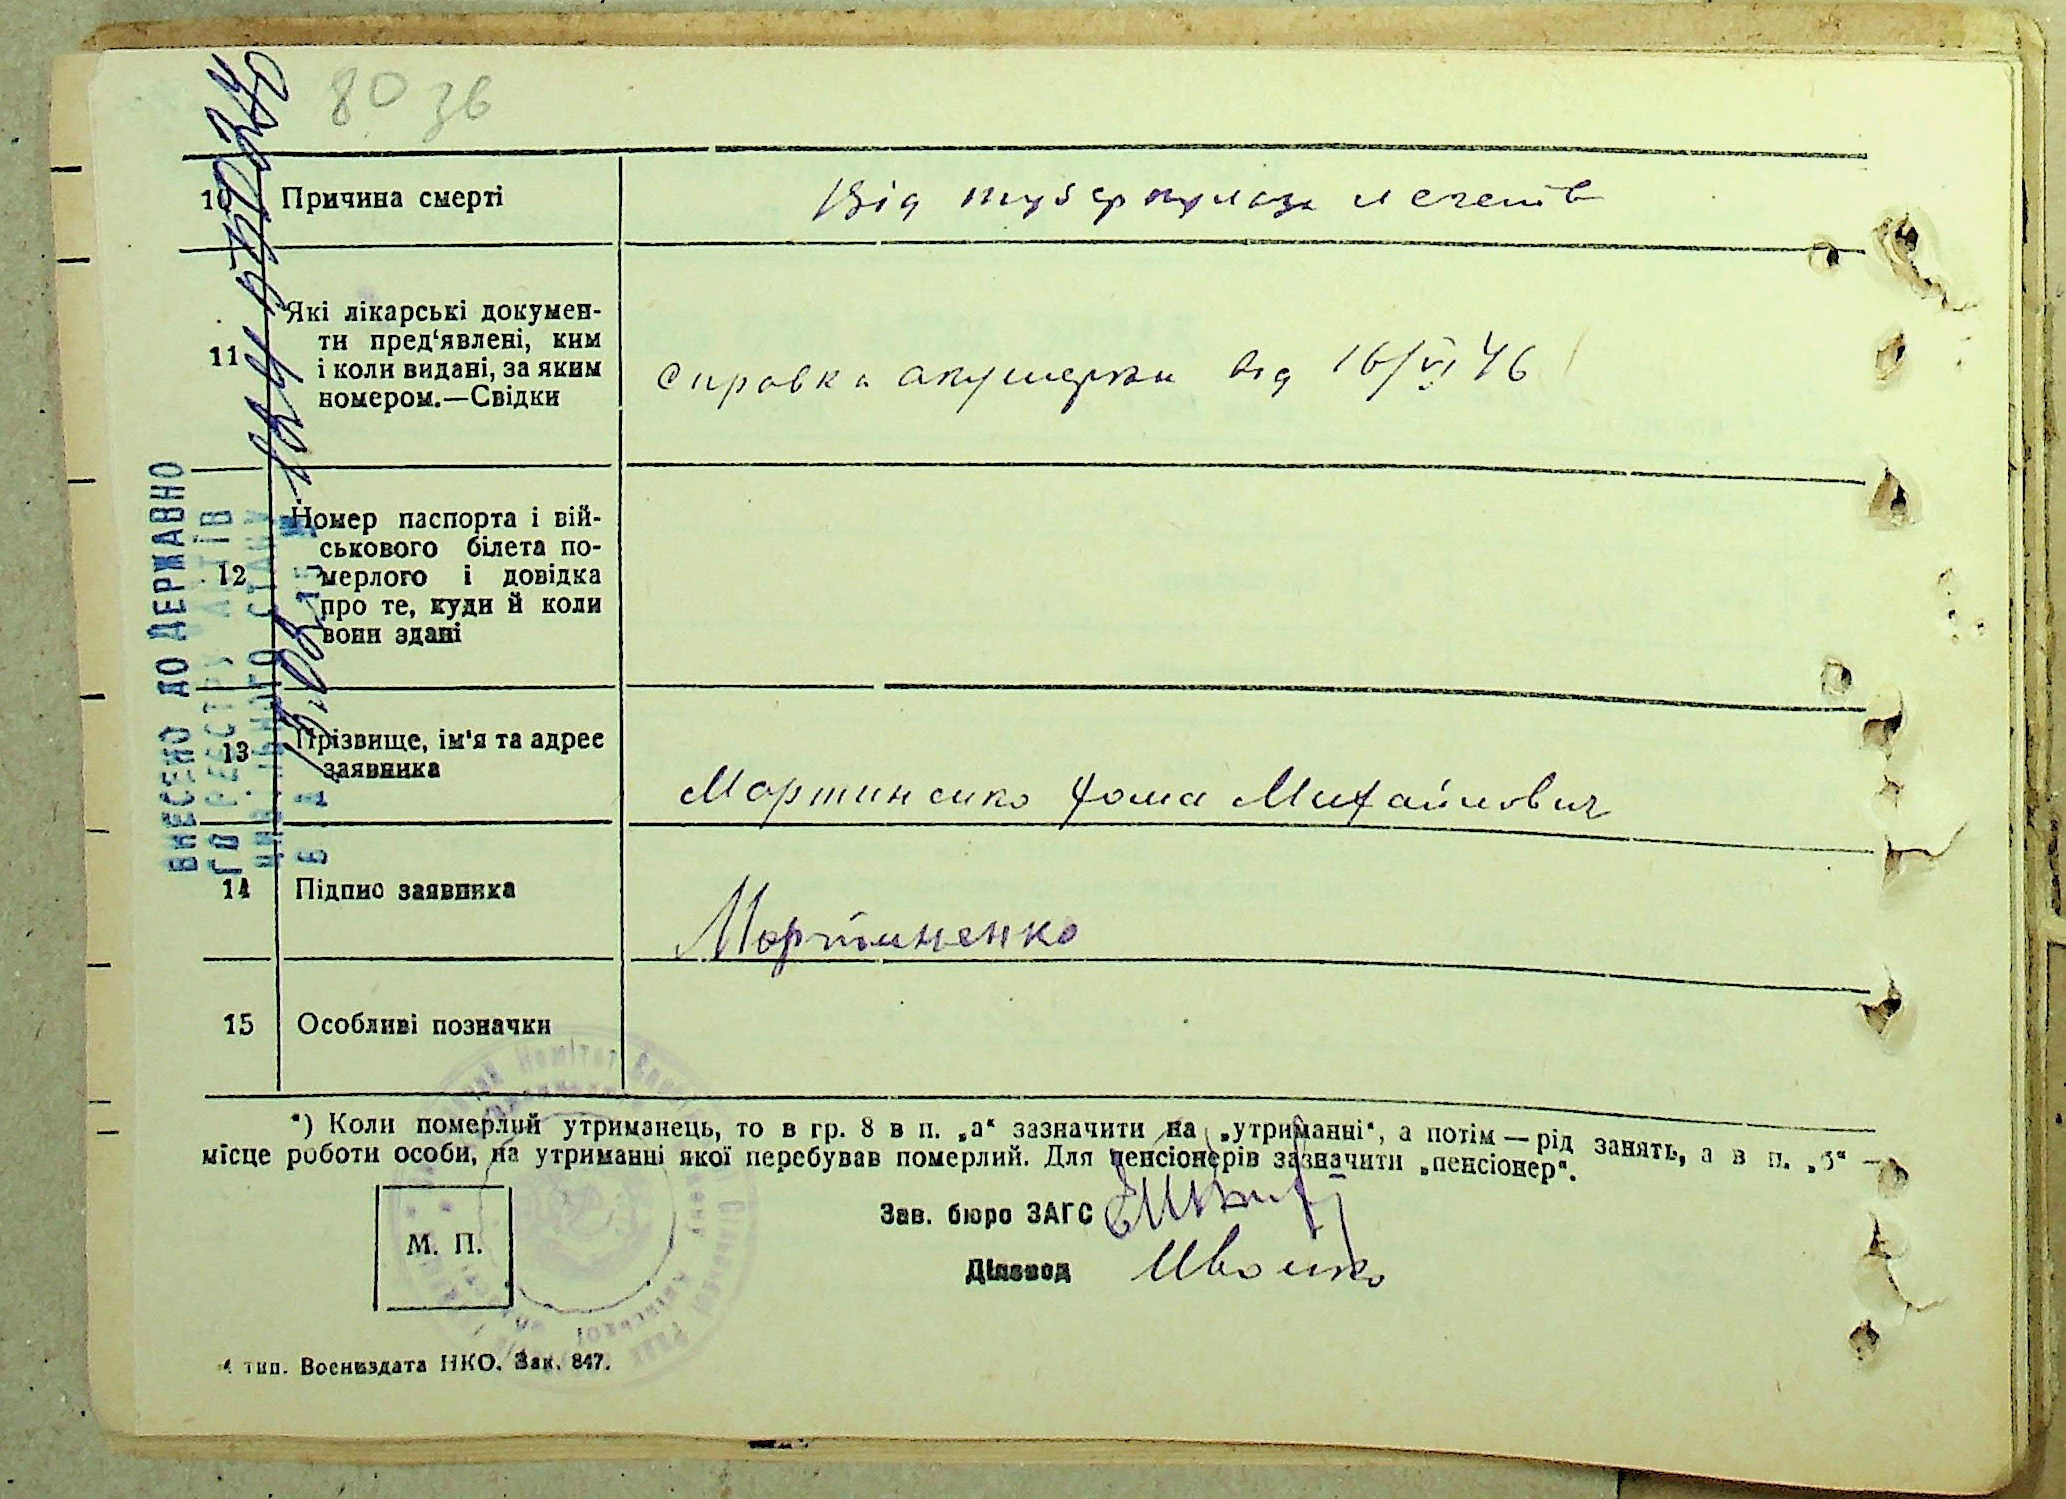 80 зв
10 Причина смерті Від туберкулоза легенів
11 Які лікарські докумен-
ти пред‘явлені, ким
і коли видані, за яким
номером.—Свідки
Справка акушерки від 16/VI 46
12 Номер паспорта і вій-
ськового білета по-
мерлого і довідка
про те, куди й коли
вони здані
13 Прізвище, ім'я та адрес
заявника
Мартиненко Фома Михайлович
14 Підпис заявника Мартиненко
15 Особливі позначки
*) Коли померлий утриманець, то в гр. 8 в п. „а“ зазначити на „утриманні“, а потім — рід занять, а в п. „б“ —
місце роботи особи, на утриманні якої перебував померлий. Для пенсіонерів зазначити „пенсіонер“.
Зав. бюро ЗАГС
М. П.
Діловод
тип. Воениздата НКО. Зак. 847.
ВНЕСЕНО ДО ДЕРЖАВНО
ГО РЕЄСТРУ АКТІВ
ЦИВІЛЬНОГО СТАНУ